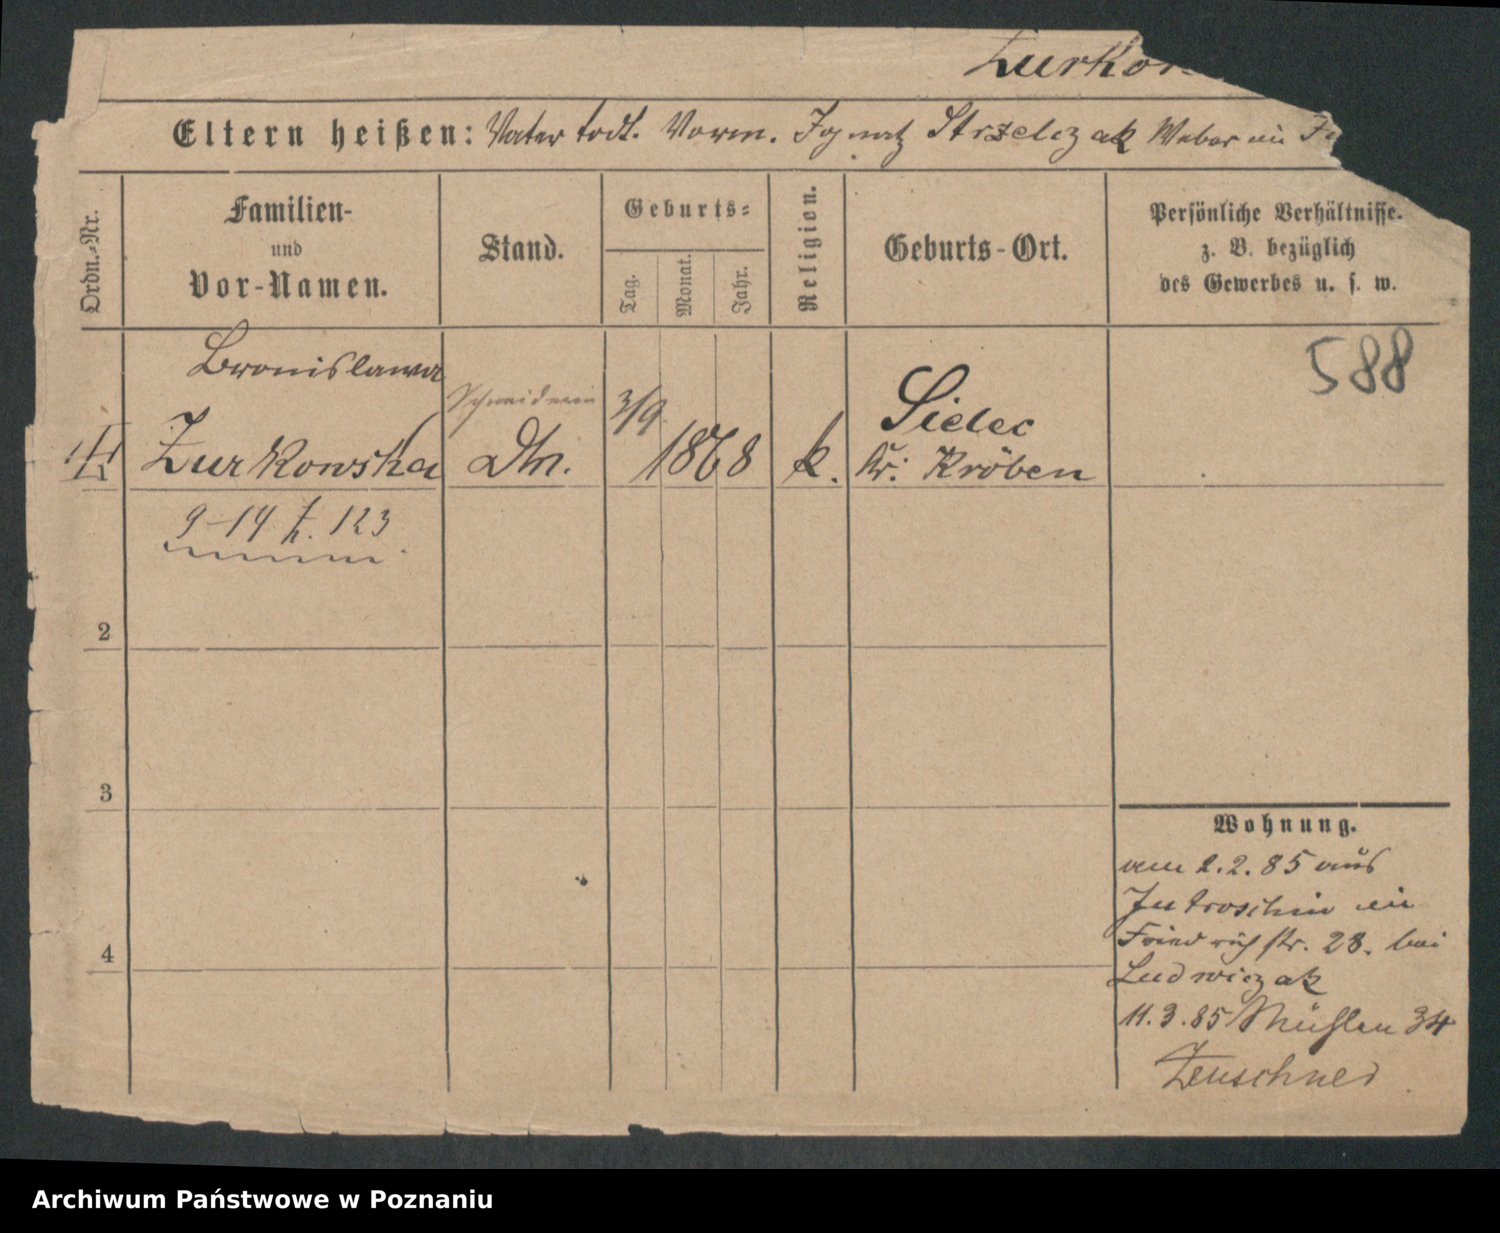 Zurkow
Eltern heißen: Vater todt. Vorm. Ignatz Strzelczak Weber in Ju
Ordn.-Nr.
Familien-
und
Vor-Namen.
Stand.
Geburts-
Tag.
Monat.
Jahr.
Religion.
Geburts-Ort.
Persönliche Verhältnisse.
z. B. bezüglich
des Gewerbes u. s. w.
588
Bronislawa
Zurkowska
Schneiderin
3/9
1868
k.
Sielec
Kr. Kröben
9-14 123
2
3
4
Wohnung.
am 2.2.85 aus
Jutroschin in
Friedrichstr. 28. bei
Ludwiczak
11.3.85 Mühlen 34
Zeuschner
Archiwum Państwowe w Poznaniu